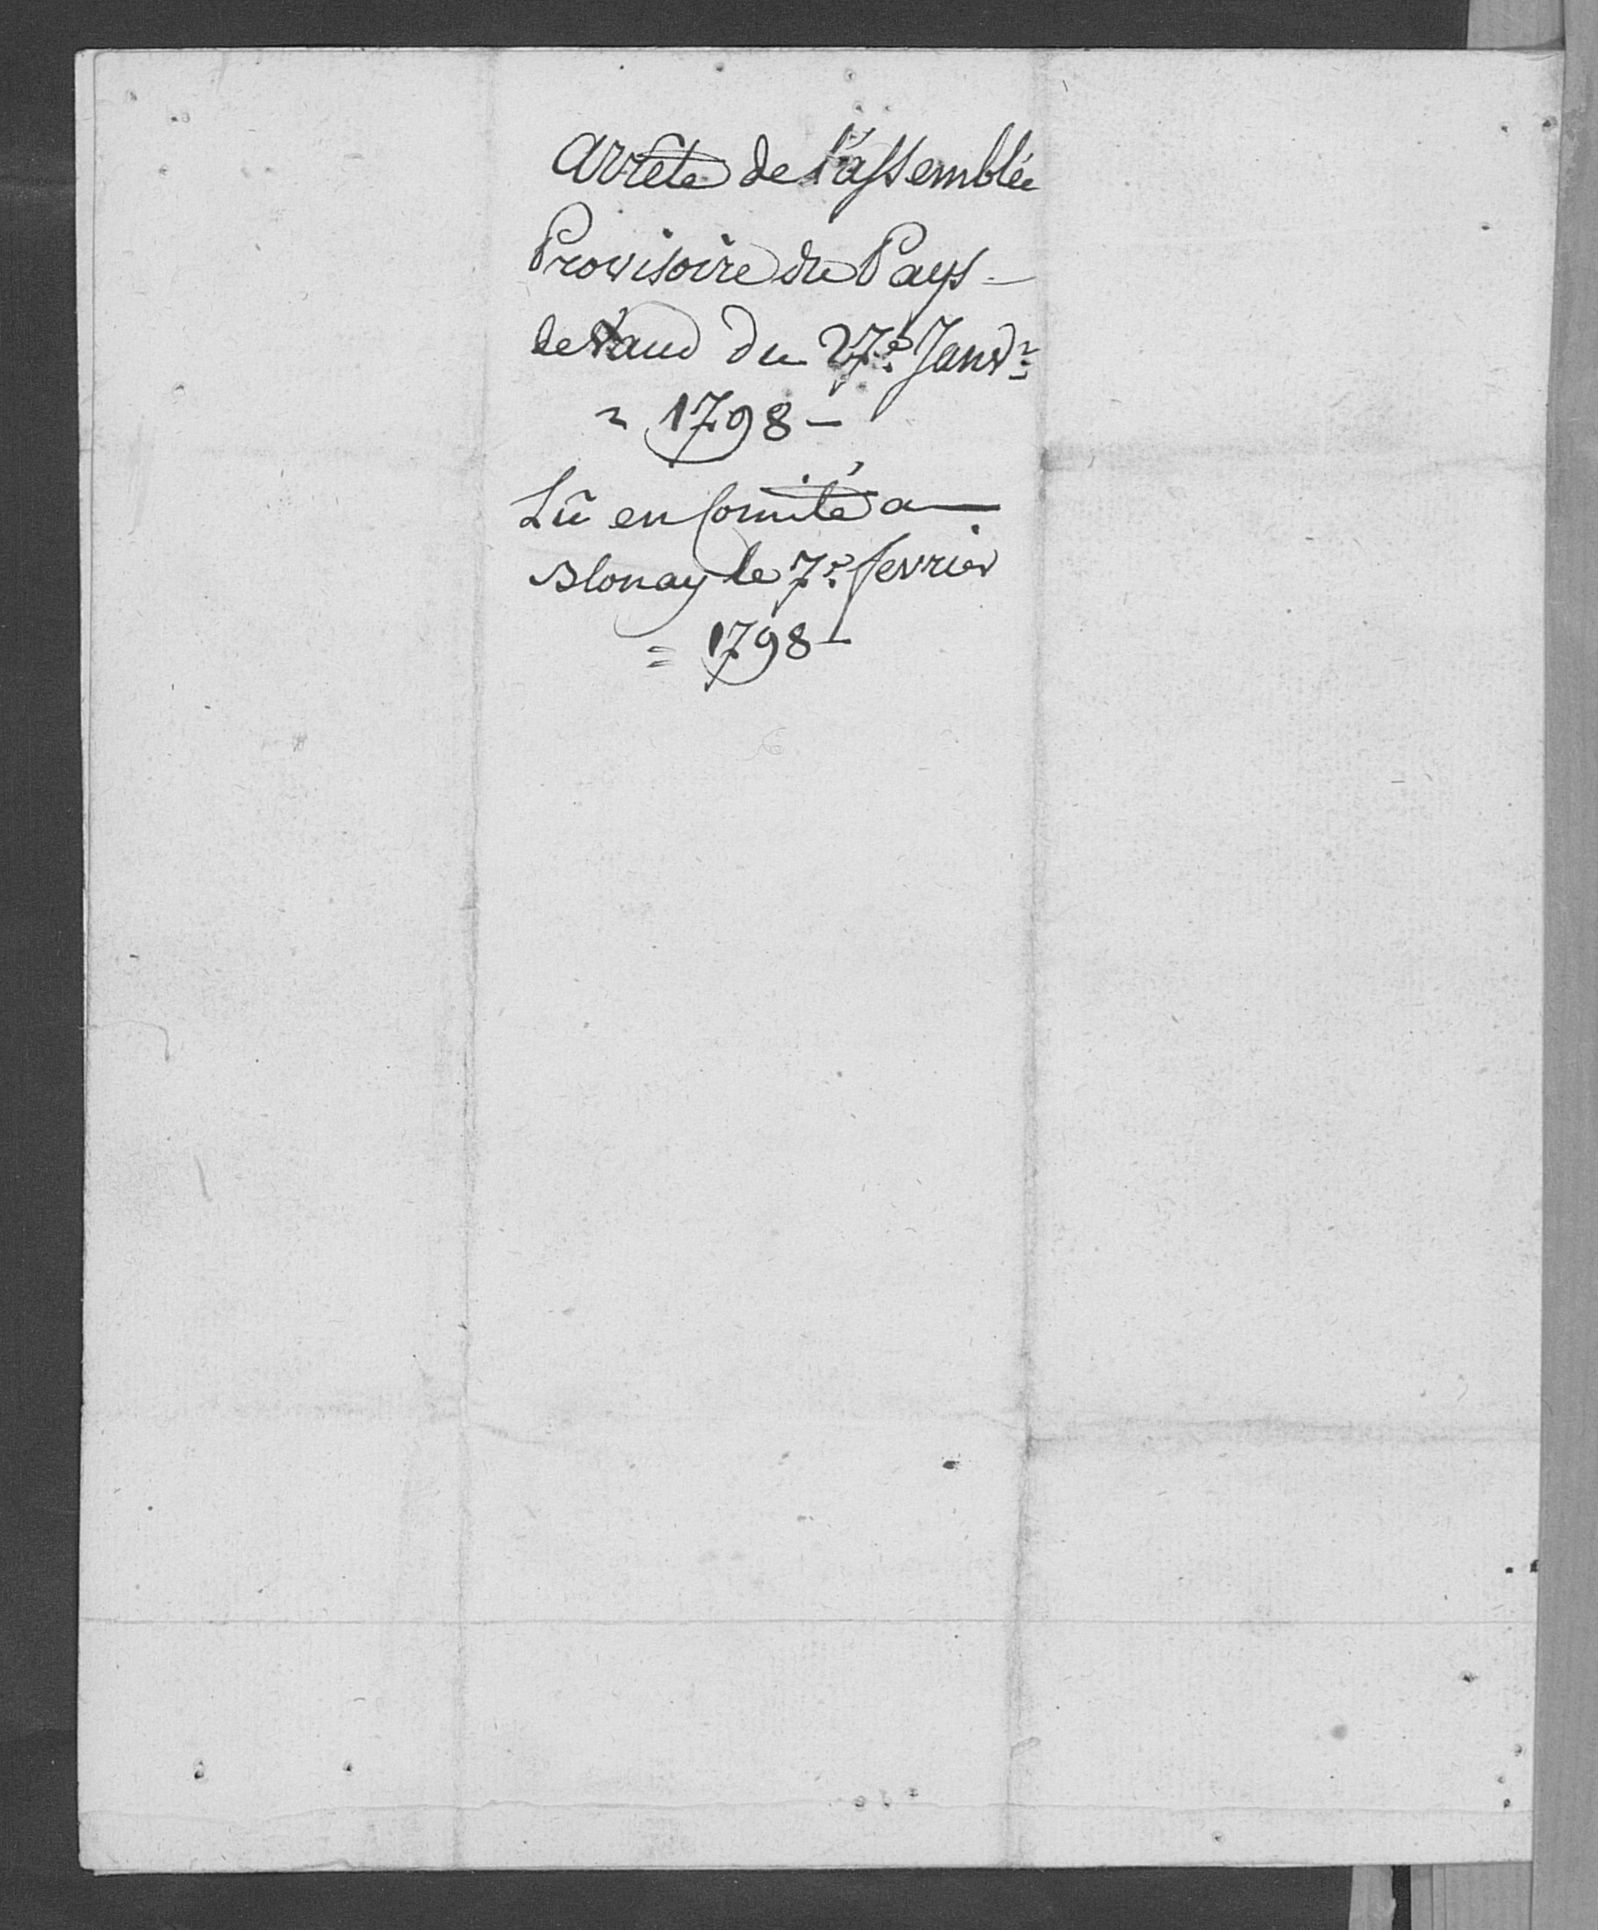 Arrête de l'assemblée
Provisoire du Pays -
de Vaud du 27e. Janvr
= 1798 -
Lû en Comité a
Blonay le 7e. fevrier
= 1798 -